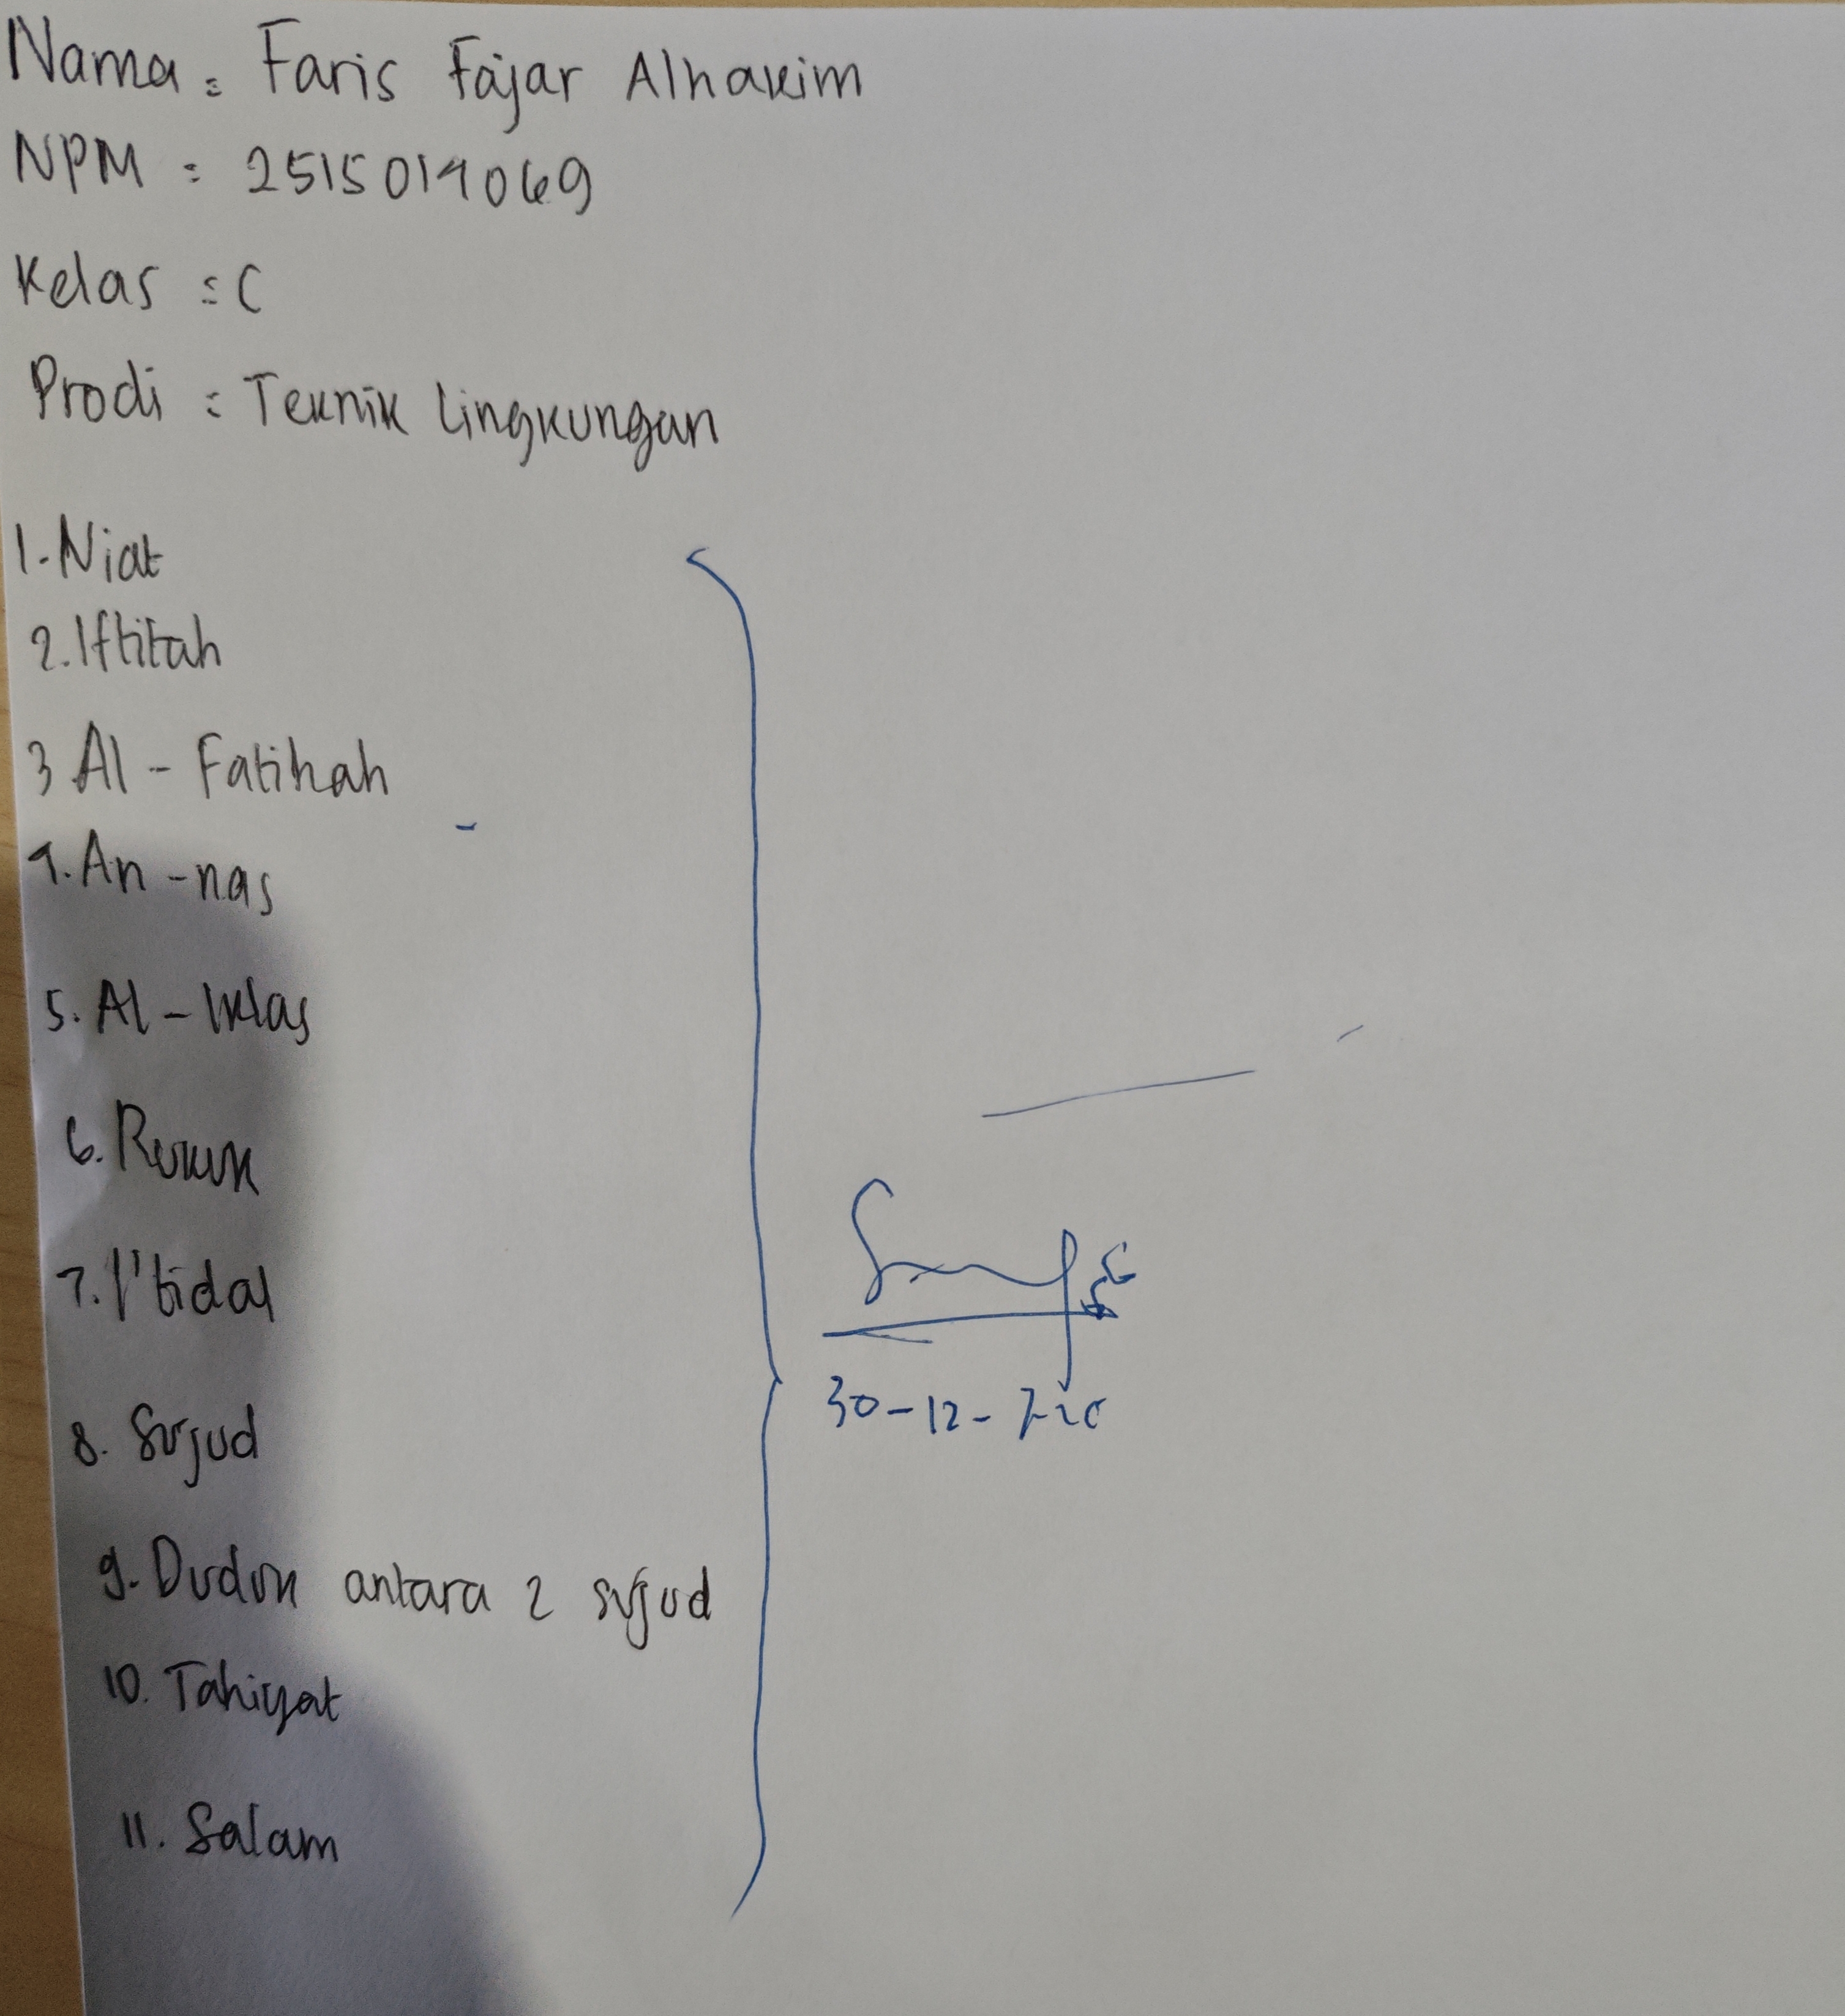 Nama : Faris Fajar Alhakim
NPM : 2515014069
Kelas : C
Prodi : Teknik Lingkungan
1. Niat
2. Iftitah
3 Al - Fatihah
4. An - nas
5. Al - Iklas
6. Rukuk
7. I'tidal
8. Sujud
9. Duduk antara 2 sujud
10. Tahiyat
11. Salam
30-12-